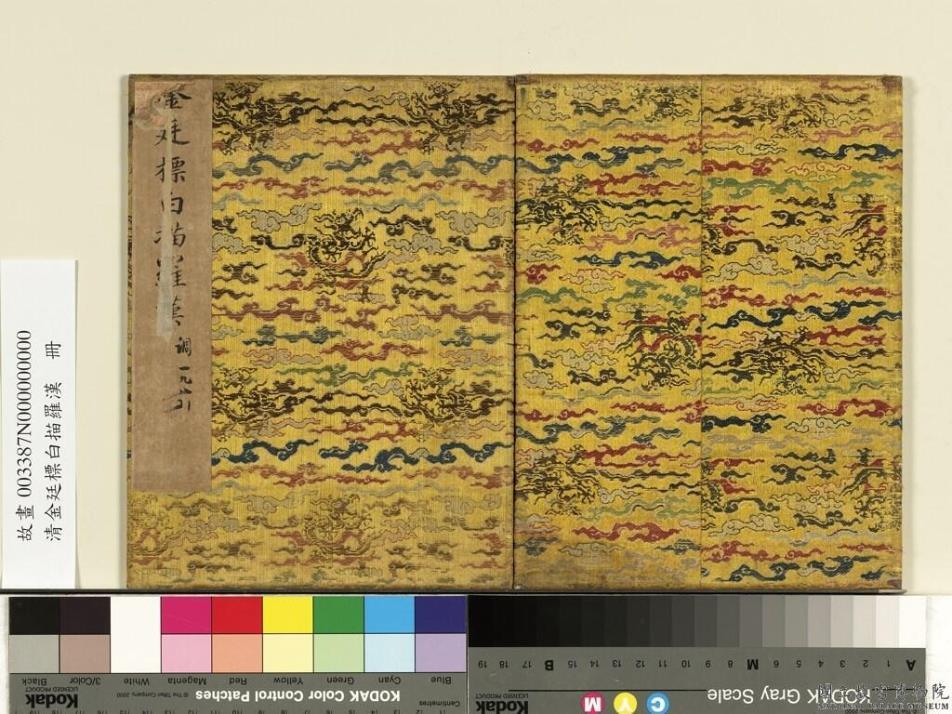 金廷標白描羅漢
調一九六
故畫 003387N000000000
清金廷標白描羅漢 冊
Blue Cyan Green Yellow Red Magenta White 3/Color Black
KODAK Color Control Patches
© The Tiffen Company, 2000
Kodak
LICENSED PRODUCT
Centimetres
A 1 2 3 4 5 6 M 8 9 10 11 12 13 14 15 B 17 18 19
KODAK Gray Scale
C Y M
Kodak
LICENSED PRODUCT
國立故宮博物院
NATIONAL PALACE MUSEUM